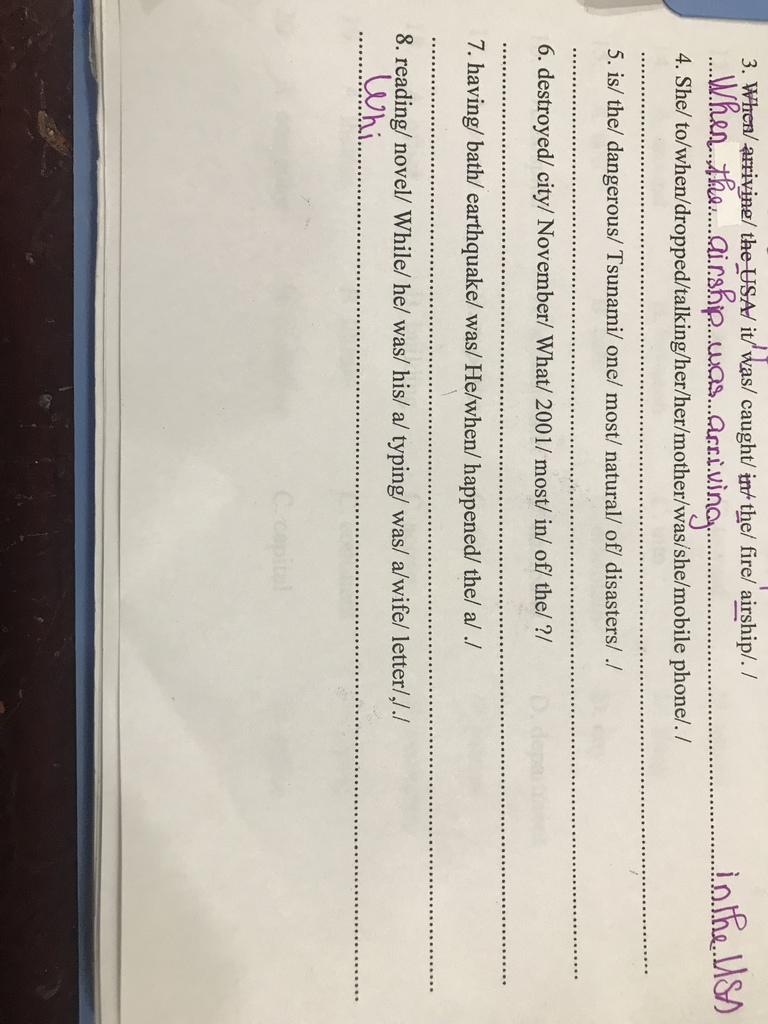 3. When/ arriving/ the USA/ it/ was/ caught/ in/ the/ fire/ airship/. /
When the airship was arriving in the USA
4. She/ to/when/dropped/talking/her/her/mother/was/she/mobile phone/. /
5. is/ the/ dangerous/ Tsunami/ one/ most/ natural/ of/ disasters/ ./
6. destroyed/ city/ November/ What/ 2001/ most/ in/ of/ the/ ?/
7. having/ bath/ earthquake/ was/ He/when/ happened/ the/ a/ ./
8. reading/ novel/ While/ he/ was/ his/ a/ typing/ was/ a/wife/ letter/,/ ./
Whi
C. capital